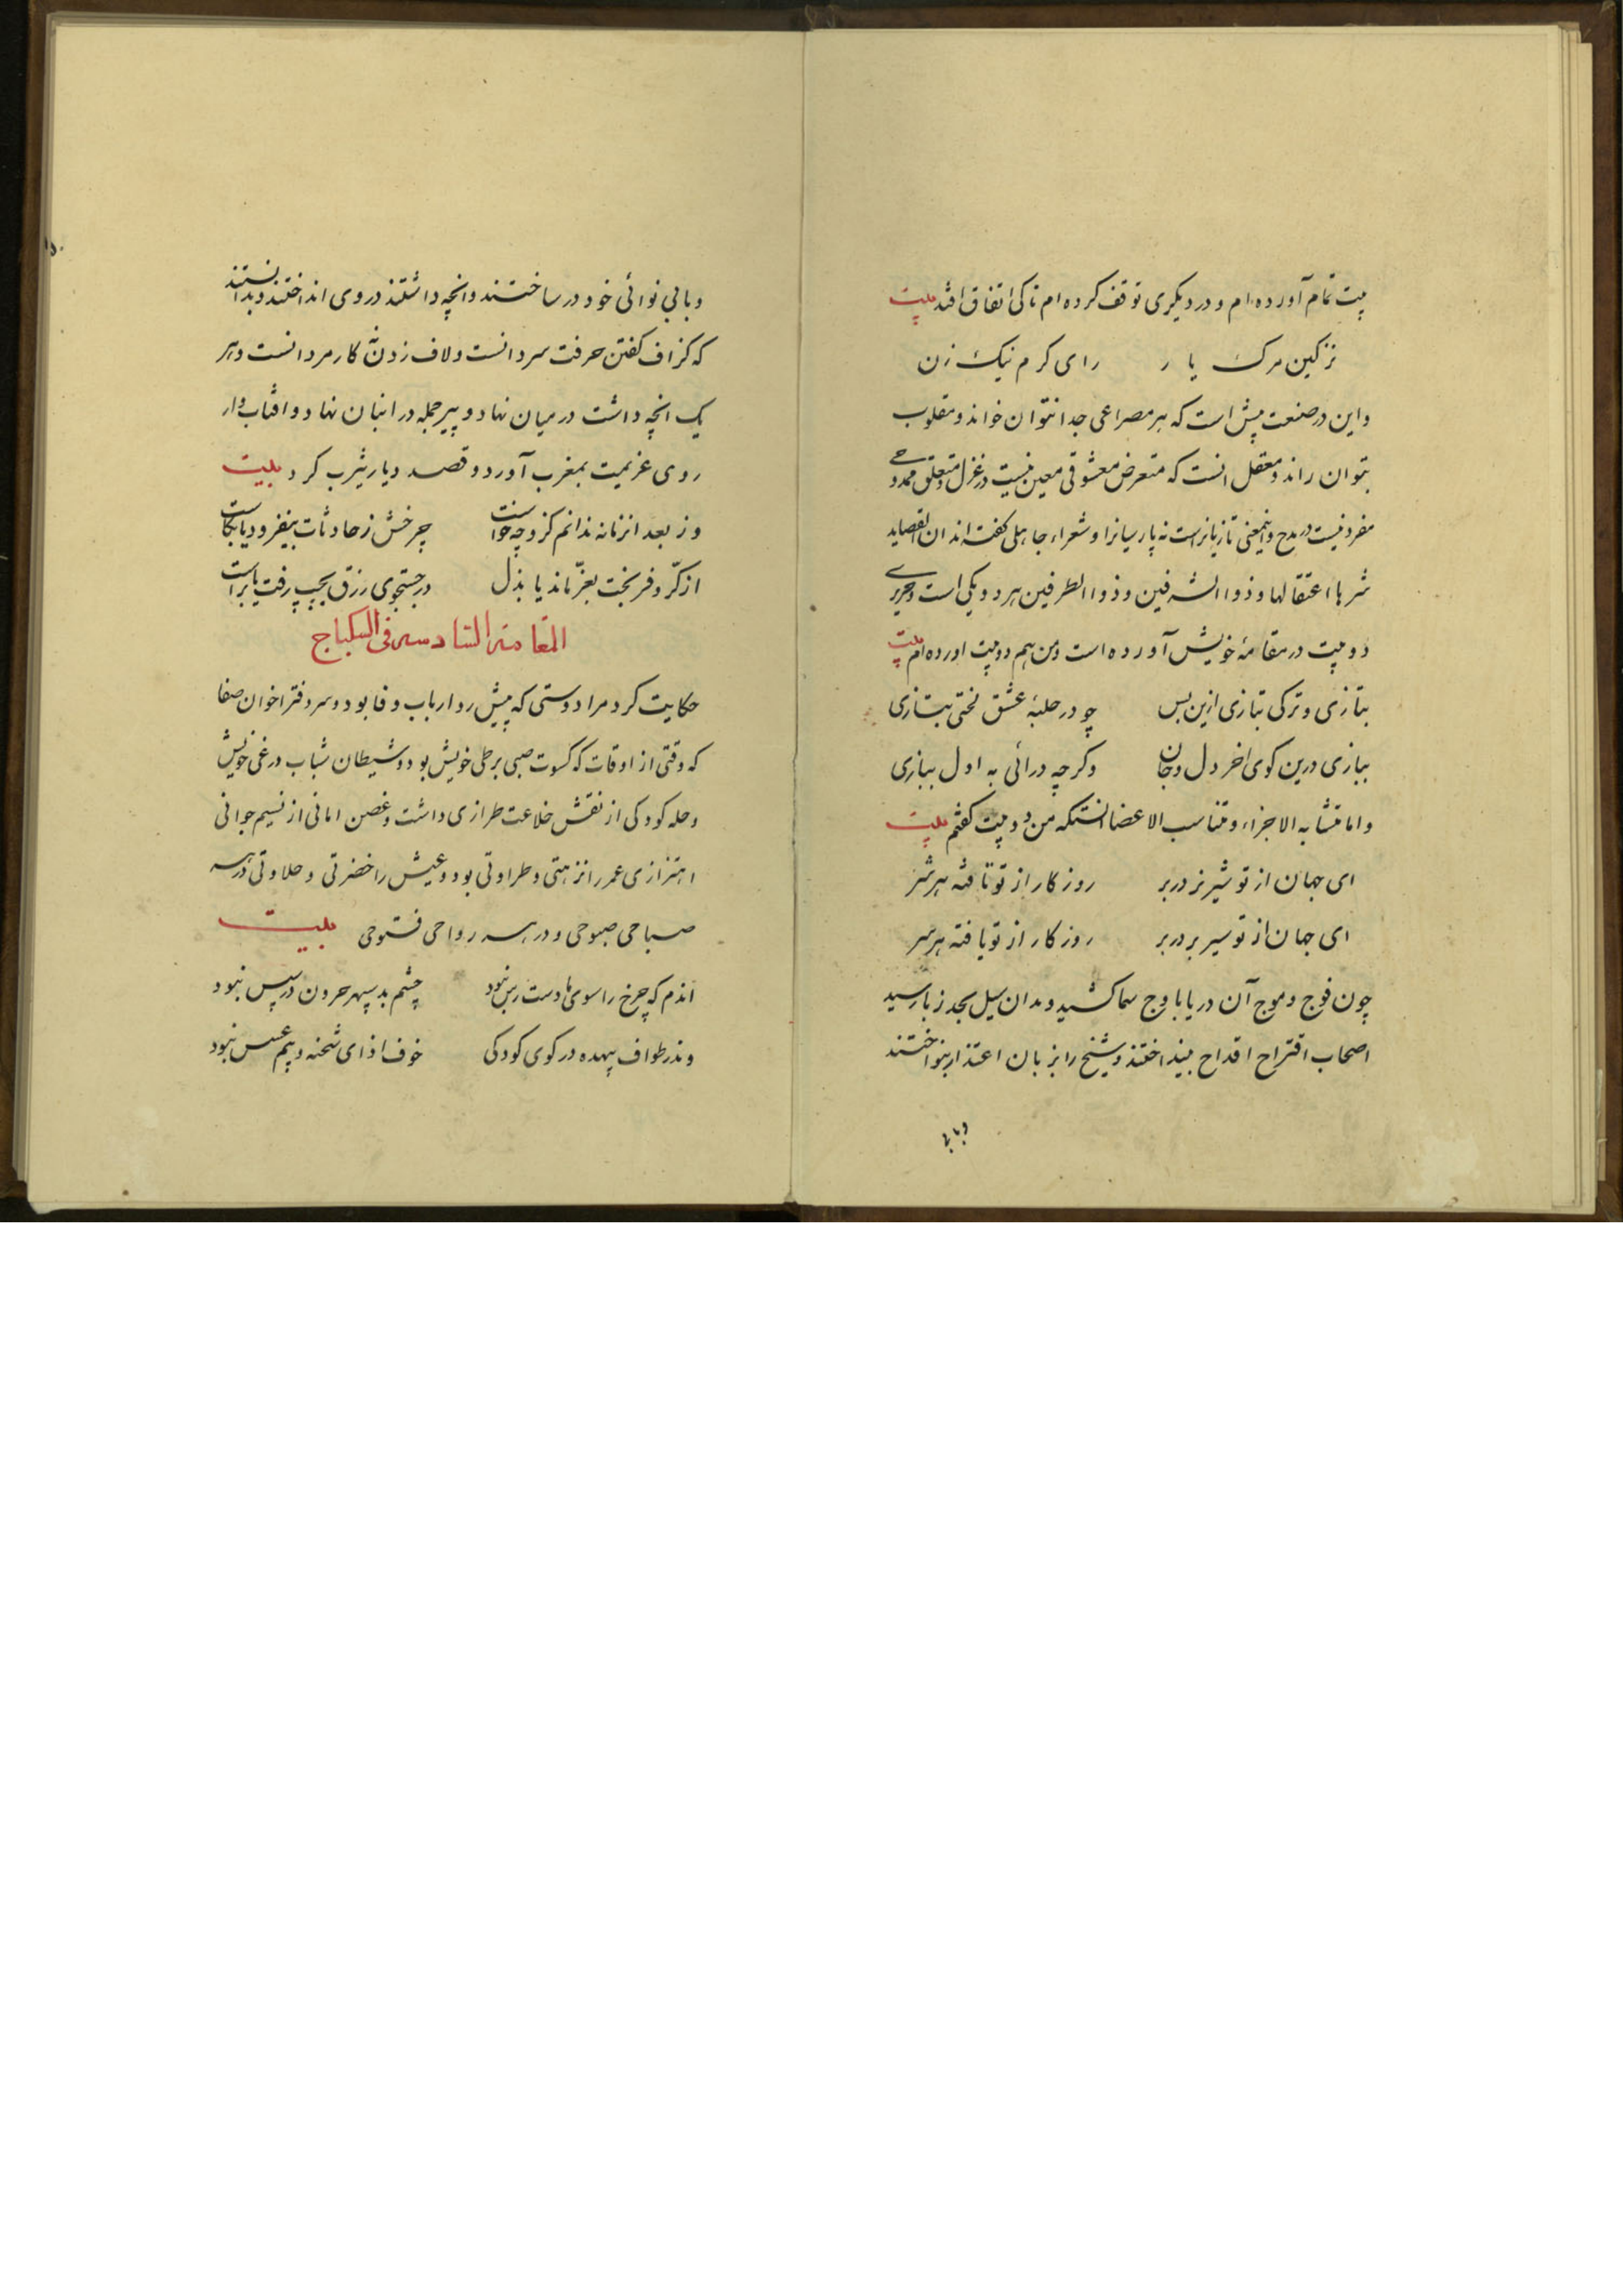 بیت تمام آورده‌ام و در دیکری توقف کرده‌ام تا کی اتفاق افتد بیت
نزکین مرک یا ر رای کرم نیک زن
واین در صنعت پیش است که هر مصراعی جدا نتوان خواند و مقلوب
بتوان راند و معقل انست که متعرض معشوقی معین نیست در غزل و متعلق ممدوحے
مفرد نیست در مدح و اینمعنی تازیانراست نه پارسیانرا و شعراء جاهلی کفته‌اند ان القصاید
شرها اعتقالها و ذوا الشرفین و ذوا الطرفین هر دو یکی است و حریرے
دو بیت در مقامهٔ خویش آورده است و من هم دو بیت اورده ام بیت
بتازی و ترکی تبازی ازین بس چو در حلبهٔ عشق لختی بتازی
ببازی درین کوی اخر دل و جان وکرچه درائی به اول ببازی
و اما متشابه الاجزاء و متناسب الاعضا انستکه من دو بیت کفتم بیت
ای جهان از تو شیر نر در بر روزکار از تو تافته هر شر
ای جهان از تو سیر بر در بر روزکار از تو یافته هر سر
چون فوج و موج آن دریا باوج سما کشید و مدان سیل بحد زبا رسید
اصحاب اقتراح اقداح بینداختند و شیخ را بزبان اعتذار بنواختند
وبابی
وبابی نوائی خود در ساختند وانچه داشتند در وی انداختند و بدانستند
که کزاف کفتن حرفت سردانست و لاف زدن کار مردانست و هر
یک انچه داشت در میان نهاد و پیر جمله در انبان نهاد و افتاب وار
روی عزیمت بمغرب آورد و قصد دیار یثرب کرد بیت
وز بعد انزمانه ندانم کزو چه خواست چرخش ز حادثات بیفزود یا بکاست
از کرّ و فر بخت بعزّ ماند یا بذل در جستجوی رزق بچپ رفت یا براست
المقامة السادسه فی السکباج
حکایت کرد مرا دوستی که پیش رو ارباب وفا بود و سر دفتر اخوان صفا
که وقتی از اوقات که کسوت صبی بر طی خویش بود و شیطان شباب در غی خویش
وحله کودکی از نقش خلاعت طرازی داشت و غصن امانی از نسیم جوانی
اهتزازی عمر را نزهتی و طراوتی بود و عیش را خضرتی و حلاوتی در هر
صباحی صبوحی و در هر رواحی فتوحی بیت
اندم که چرخ را سوی ما دست رس نبود چشم بد سپهر حرون در سپس نبود
وندر طواف بیهده در کوی کودکی خوف اذای شحنه و بیم عسس نبود